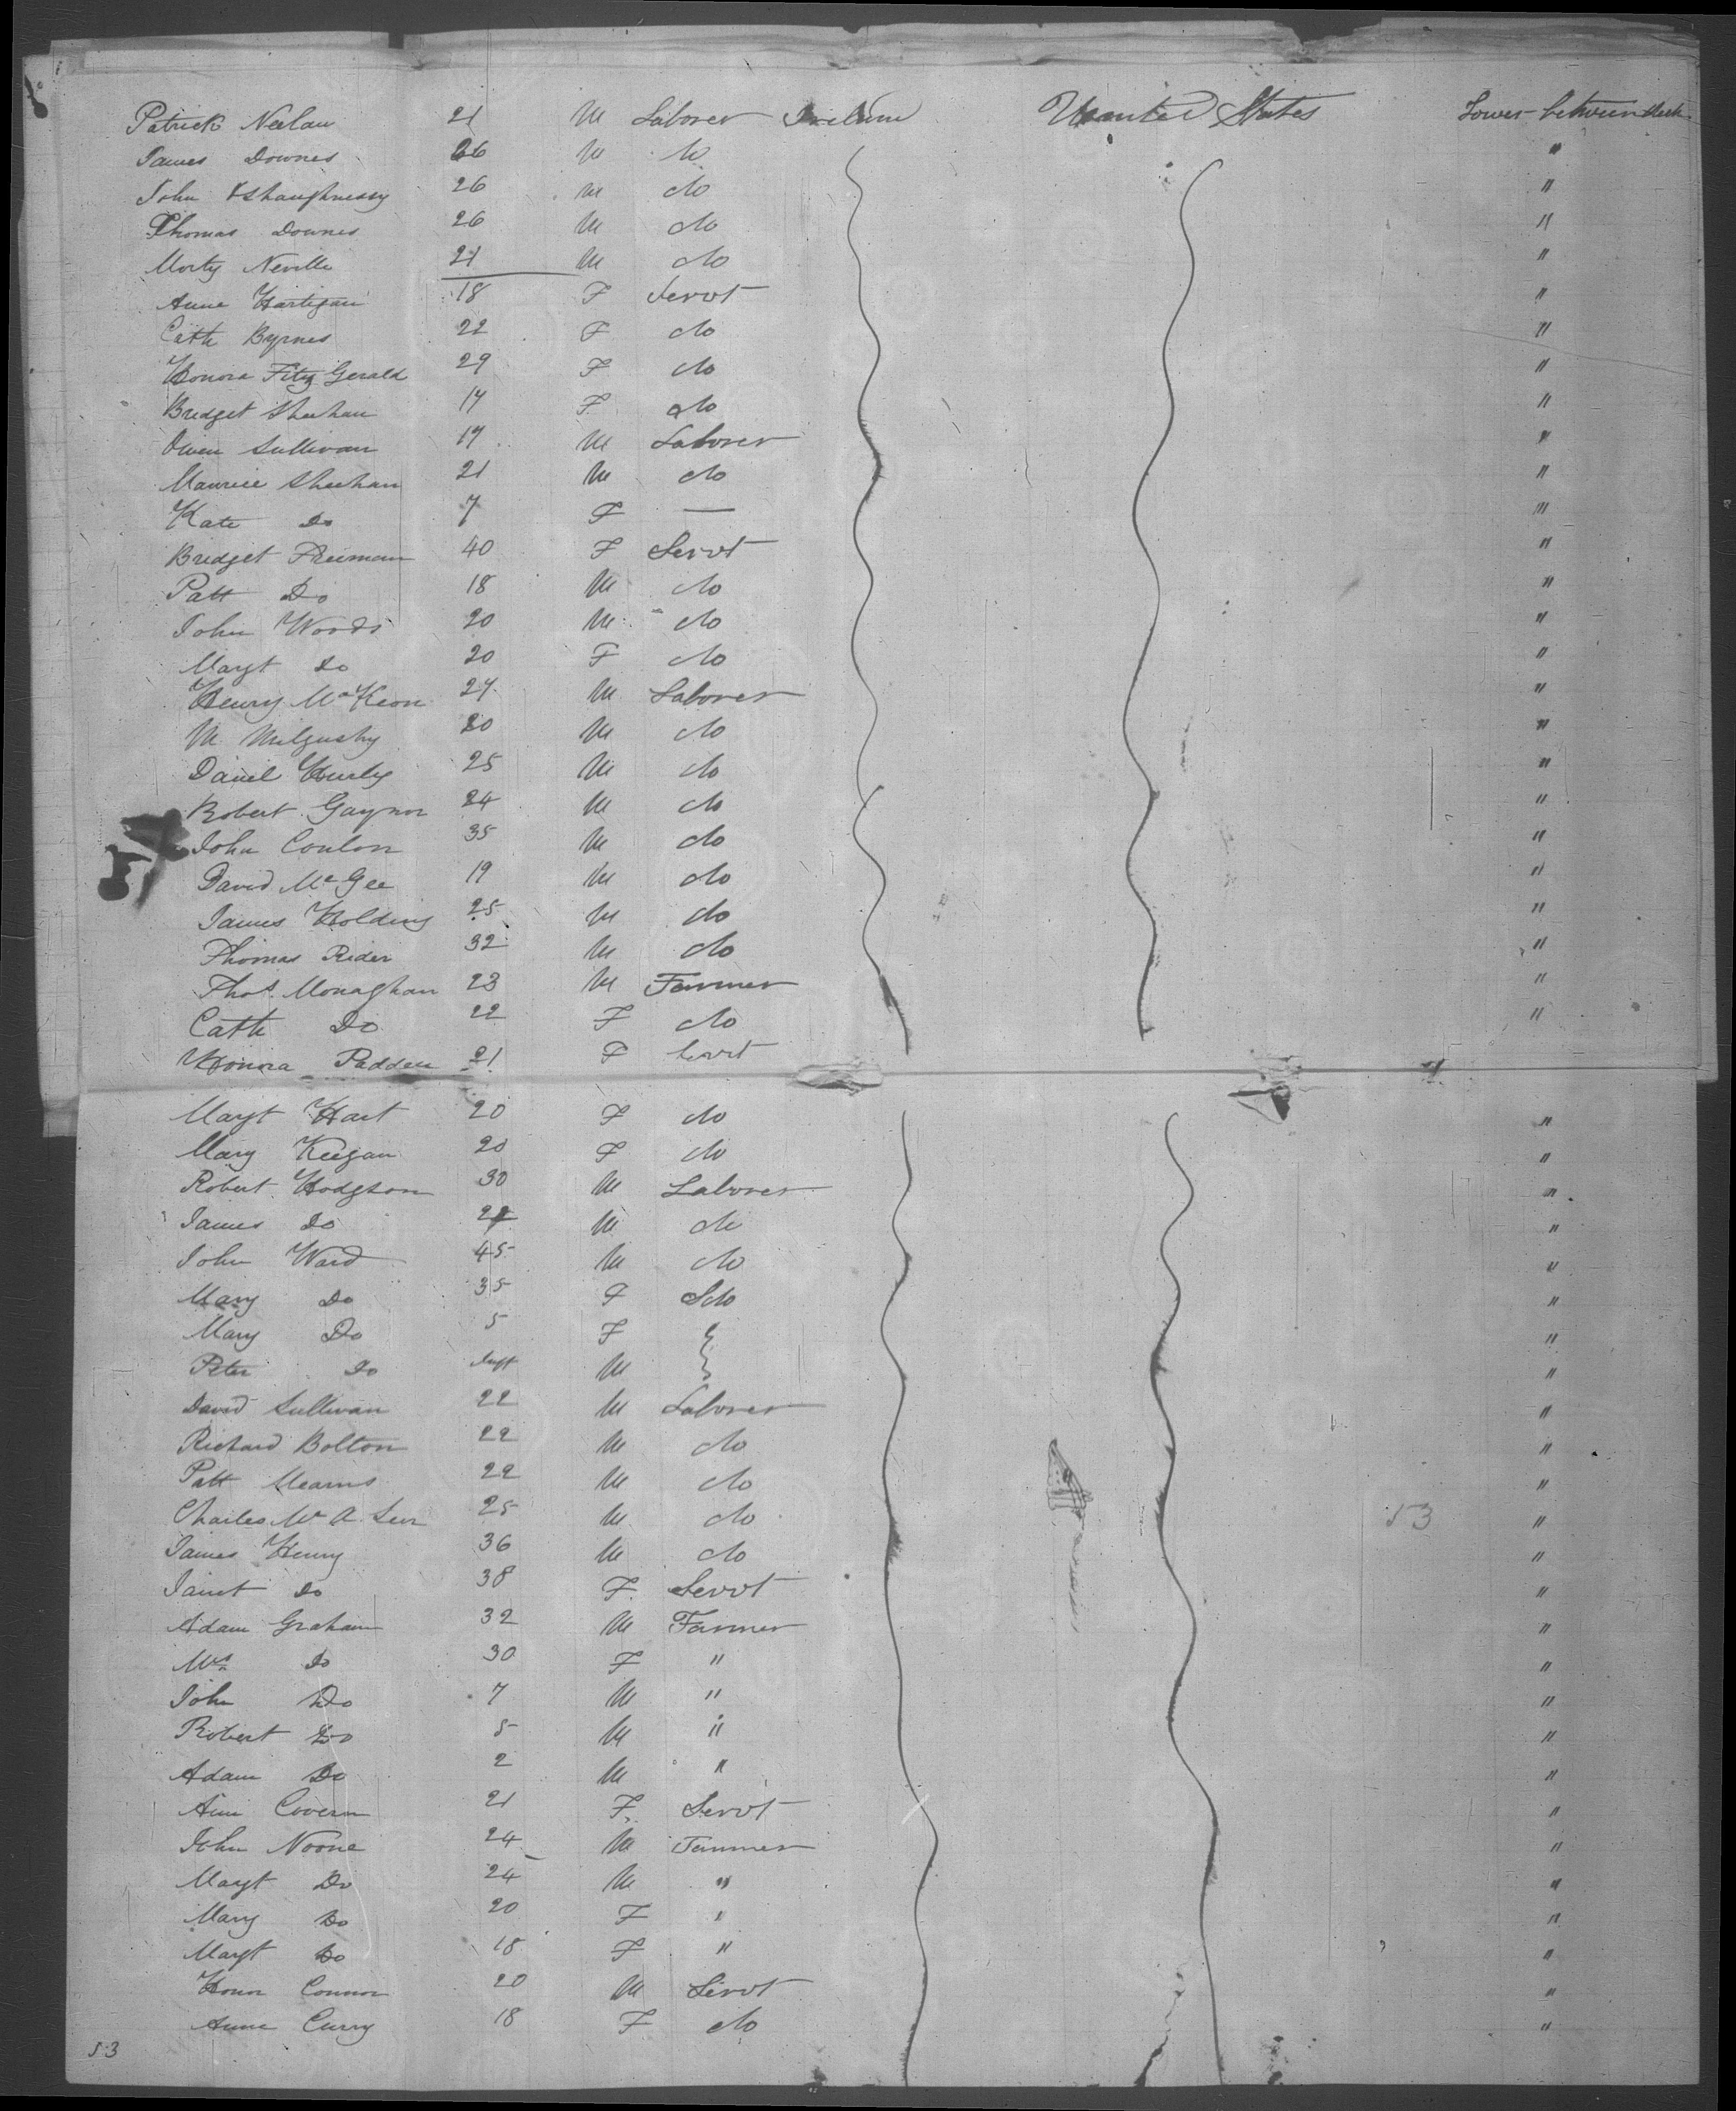 Patrick Neilan 21 M Laborer Ireland United States Lower between deck
James Downes 26 M do "
John OShaughnessy 26 M do "
Thomas Downes 26 M do "
Morty Neville 21 M do "
Anne Hartigan 18 F Servt "
Cath Byrnes 22 F do "
Honora Fitz Gerald 29 F do "
Bridget Sheehan 17 F do "
Owen Sullivan 17 M Laborer "
Maurice Sheehan 21 M do "
Kate Do 7 F — "
Bridget Freeman 40 F Servt "
Patt Do 18 M do "
John Woods 20 M do "
Margt Do 20 F do "
Henry McKeon 27 M Laborer "
M 20 M do "
Daniel Hurly 25 M do "
Robert Gaynor 24 M do "
John Conlon 35 M do "
David McGee 19 M do "
James Holding 25 M do "
Thomas Rider 32 M do "
Thos. Monaghan 23 M Farmer "
Cath Do 22 F do "
Honora Padden 21 F Servt "
Margt Hart 20 F do "
Mary Keegan 20 F do "
Robert Hodgson 30 M Laborer "
James Do M do "
John Ward 45 M do "
Mary Do 35 F "
Mary Do 5 F "
Peter Do Inft M "
David Sullivan 22 M Laborer "
Richard Bolton 22 M do "
Patt Mearns 22 M do "
Charles 25 M do 53 "
James Henry 36 M do "
Janet Do 38 F Servt "
Adam Graham 32 M Farmer "
Mrs Do 30 F " "
John Do 7 M " "
Robert Do 5 M " "
Adam Do 2 M " "
Ann Covern 21 F Servt "
John Noone 24 M Farmer "
Margt Do 24 M " "
Mary Do 20 F " "
Margt Do 18 F " "
Honor Connor 20 M Servt "
Anne Curry 18 F do "
53